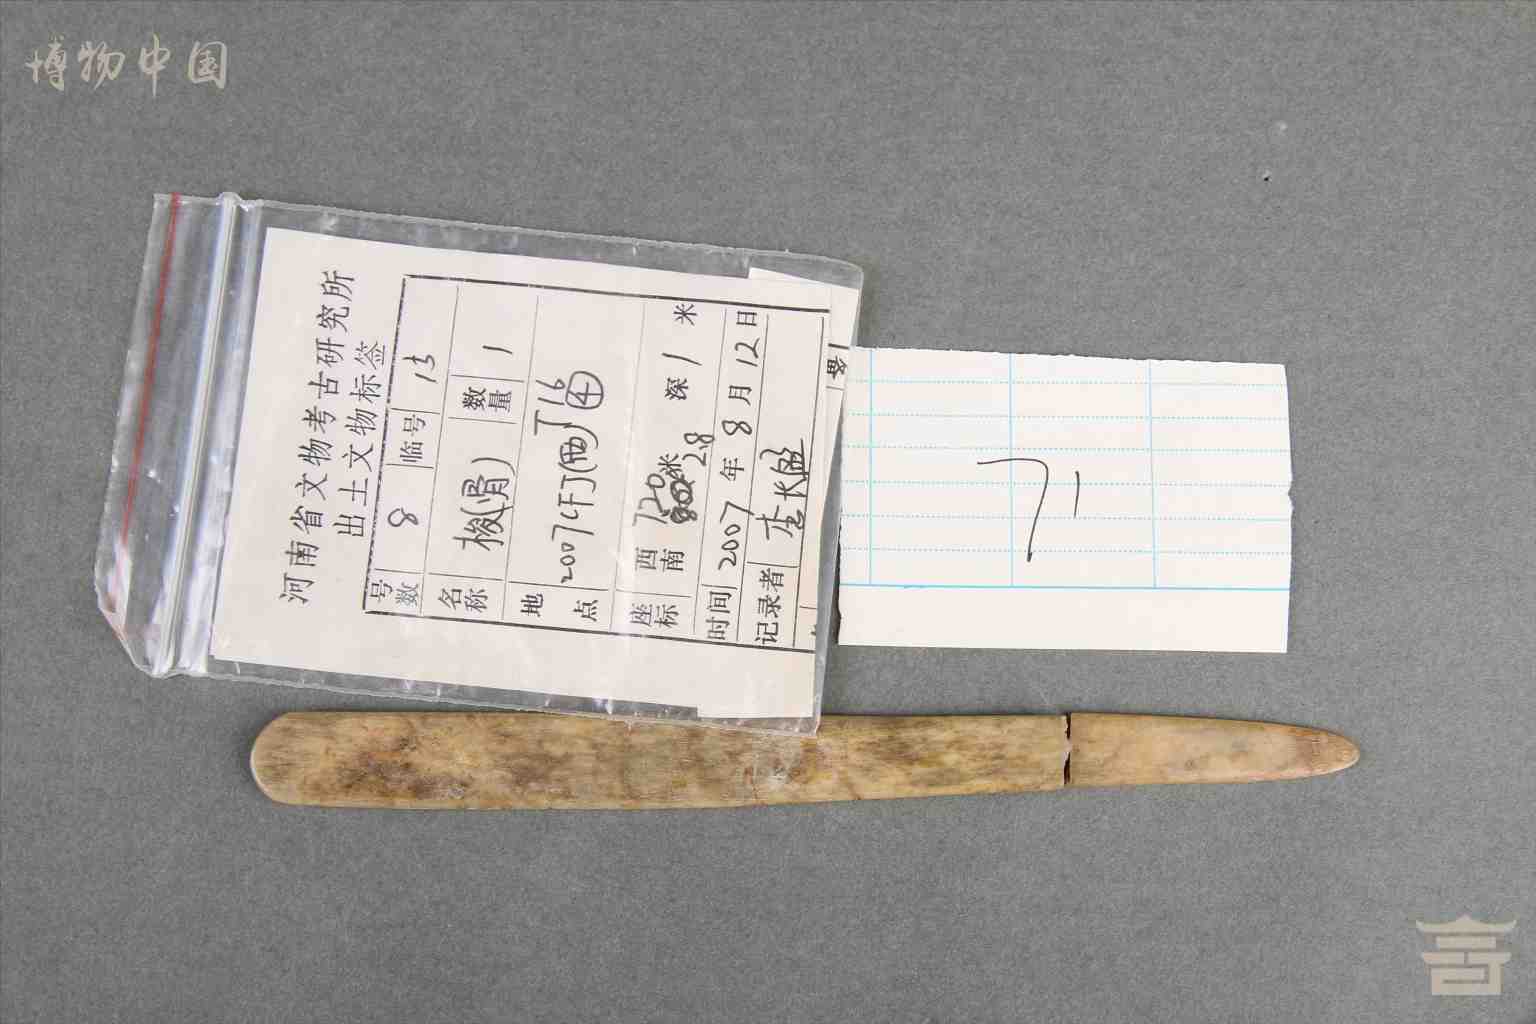 博物中国
河南省文物考古研究所
出土文物标签
号数 8 临号 13
名称 梭(骨) 数量 1
地点 2007CFJ(西)T16④
座标 西 720米 南 2.8 深 1 米
时间 2007年 8月 12日
记录者 李长盈
71